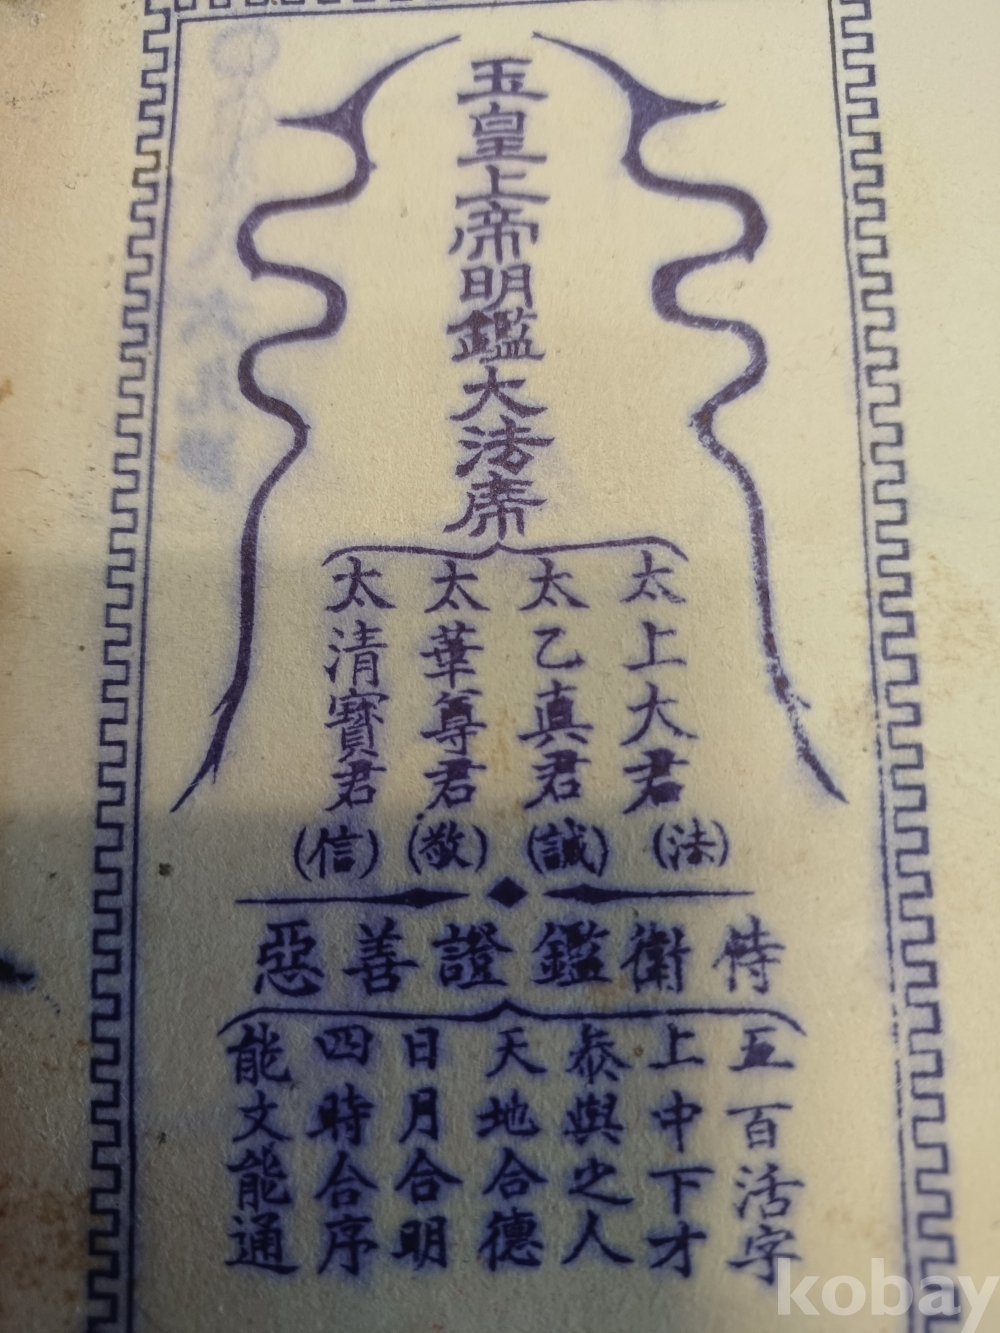 玉皇上帝明鑑大法席
太上大君
(法)
太乙真君
(誠)
太華尊君
(敬)
太清寶君
(信)
侍衛鑑證善惡
五百活字
上中下才
叅與之人
天地合德
日月合明
四時合序
能文能通
kobay